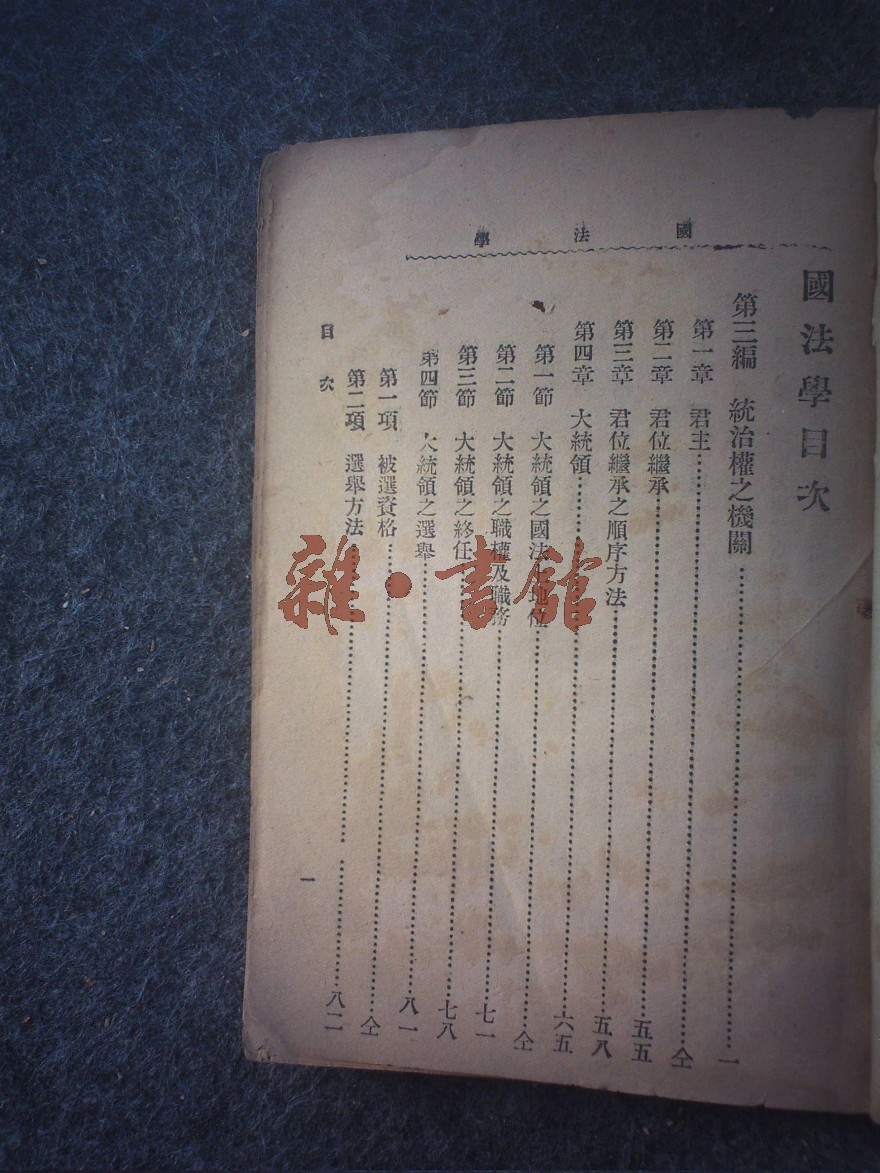 國法學
國法學目次
第三編　統治權之機關……一
第一章　君主……仝
第二章　君位繼承……五五
第三章　君位繼承之順序方法……五八
第四章　大統領……六五
第一節　大統領之國法上地位……仝
第二節　大統領之職權及職務……七一
第三節　大統領之終任……七八
第四節　大統領之選舉……八一
第一項　被選資格……仝
第二項　選舉方法……八二
目次
一
雜·書館